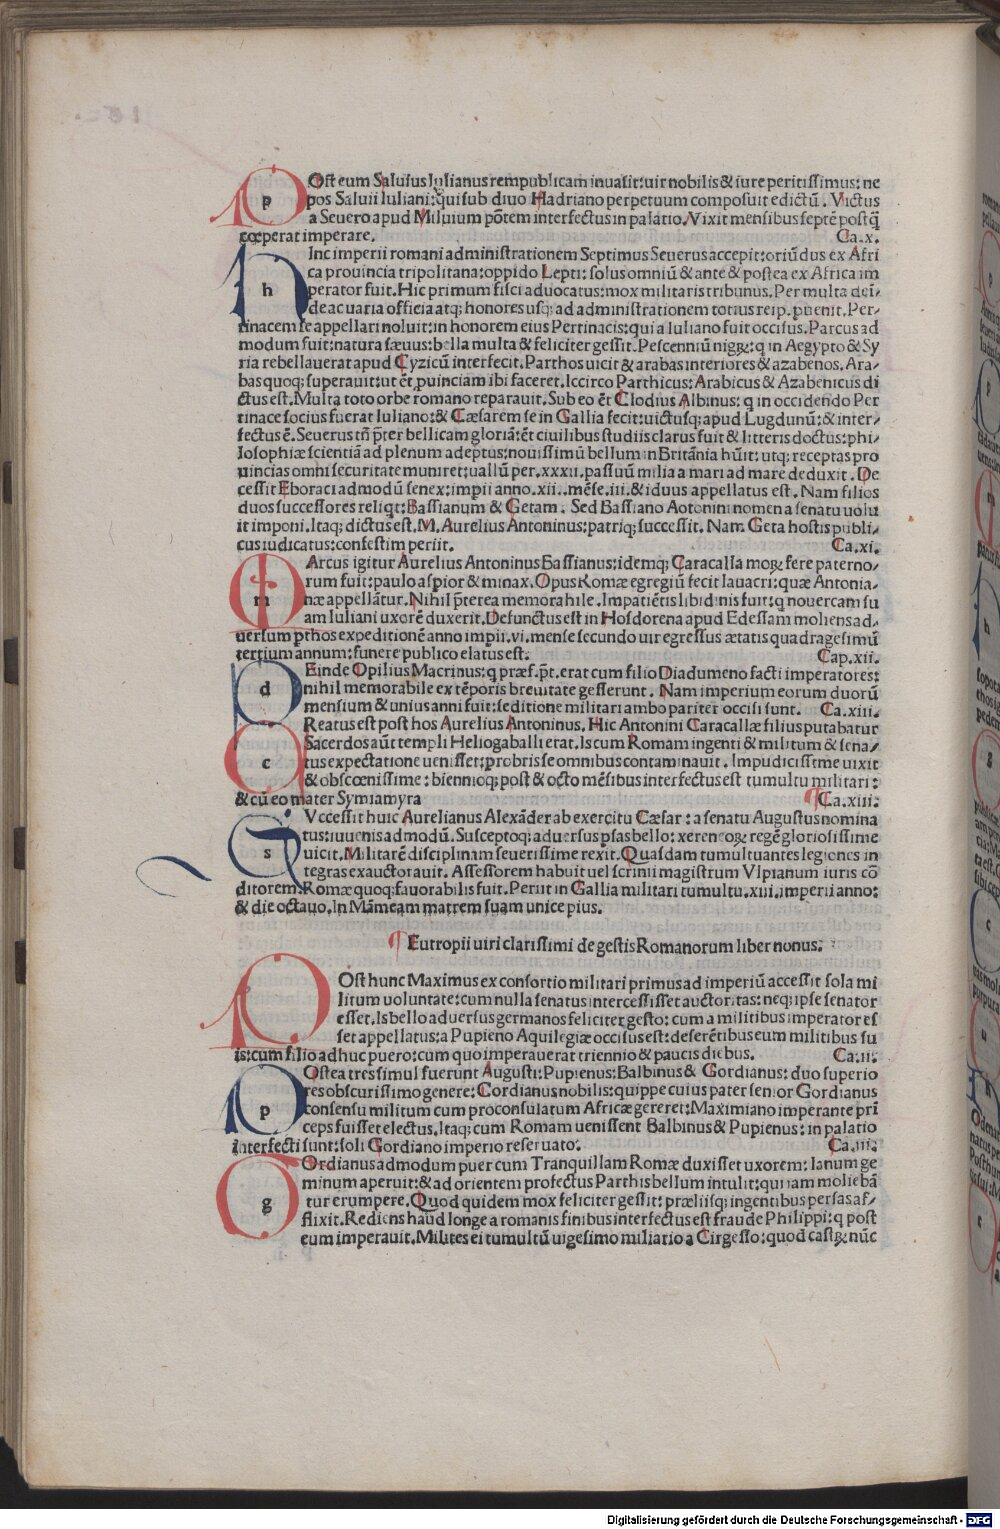 POst eum Saluius Iulianus rempublicam inuasit: uir nobilis & iure peritissimus: ne
pos Saluii Iuliani: qui sub diuo Hadriano perpetuum composuit edictū. Victus
a Seuero apud Miluium pōtem interfectus in palatio. Vixit mensibus septē post q̄
cœperat imperare. Ca.x.
HInc imperii romani administrationem Septimus Seuerus accepit: oriūdus ex Afri
ca prouincia tripolitana: oppido Lepti: solus omniū & ante & postea ex Africa im
perator fuit. Hic primum fisci aduocatus: mox militaris tribunus. Per multa dei̅/
de ac uaria officia atq; honores usq; ad administrationem totius reip. puenit. Per/
tinacem se appellari noluit: in honorem eius Pertinacis: qui a Iuliano fuit occisus. Parcus ad
modum fuit: natura sæuus: bella multa & feliciter gessit. Pescenniū nigꝝ: q in Aegypto & Sy
ria rebellauerat apud Cyzicū interfecit. Parthos uicit & arabas interiores & azabenos. Ara/
bas quoq; superauit: ut ēt ꝓuinciam ibi faceret. Iccirco Parthicus: Arabicus & Azabenicus di
ctus est. Multa toto orbe romano reparauit. Sub eo ēt Clodius Albinus: q in occidendo Per
tinace socius fuerat Iuliano: & Cæsarem se in Gallia fecit: uictusq; apud Lugdunū: & inter/
fectus ē. Seuerus tn̄ p̄ter bellicam gloriā: ēt ciuilibus studiis clarus fuit & litteris doctus: phi/
losophiæ scientiā ad plenum adeptus: nouissimū bellum in Britānia hūit: utq; receptas pro
uincias omni securitate muniret: uallū per .xxxii. passuū milia a mari ad mare deduxit. De
cessit Eboraci admodū senex: impii anno .xii. mēse .iii. & iduus appellatus est. Nam filios
duos successores reliqt: Bassianum & Getam. Sed Bassiano Aotonini nomen a senatu uolu
it imponi. Itaq; dictus est .M. Aurelius Antoninus: patriq; successit. Nam Geta hostis publi/
cus iudicatus: confestim periit. Ca.xi.
MArcus igitur Aurelius Antoninus Bassianus: idemq; Caracalla moꝝ fere paterno/
rum fuit: paulo aspior & minax. Opus Romæ egregiū fecit lauacri: quæ Antonia/
næ appellātur. Nihil p̄terea memorabile. Impatiētis libidinis fuit: q nouercam su
am Iuliani uxorē duxerit. Defunctus est in Hosdorena apud Edessam moliens ad/
uersum pthos expeditionē anno impii .vi. mense secundo uix egressus ætatis quadragesimū
tertium annum: funere publico elatus est. Cap.xii.
DEinde Opilius Macrinus: q præf. p̄t. erat cum filio Diadumeno facti imperatores:
nihil memorabile ex tēporis breuitate gesserunt. Nam imperium eorum duorū
mensium & unius anni fuit: seditione militari ambo pariter occisi sunt. Ca.xiii.
CReatus est post hos Aurelius Antoninus. Hic Antonini Caracallæ filius putabatur
Sacerdos aūt templi Heliogaballi erat. Is cum Romam ingenti & militum & sena/
tus expectatione uenisset: probris se omnibus contaminauit. Impudicissime uixit
& obscœnissime: biennioq; post & octo mēsibus interfectus est tumultu militari:
& cū eo mater Symiamyra ¶Ca.xiii.
SVccessit huic Aurelianus Alexāder ab exercitu Cæsar: a senatu Augustus nomina
tus: iuuenis admodū. Susceptoq; aduersus psas bello: xeren eoꝝ regē gloriosissime
uicit. Militarē disciplinam seuerissime rexit. Quasdam tumultuantes legiones in
tegras exauctorauit. Assessorem habuit uel scrinii magistrum Vlpianum iuris cō
ditorem. Romæ quoq; fauorabilis fuit. Periit in Gallia militari tumultu .xiii. imperii anno:
& die octauo. In Māmeam matrem suam unice pius.
¶Eutropii uiri clarissimi de gestis Romanorum liber nonus.
POst hunc Maximus ex consortio militari primus ad imperiū accessit sola mi
litum uoluntate: cum nulla senatus intercessisset auctoritas: neq; ipse senator
esset. Is bello aduersus germanos feliciter gesto: cum a militibus imperator es
set appellatus: a Pupieno Aquilegiæ occisus est: deserētibus eum militibus su
is: cum filio adhuc puero: cum quo imperauerat triennio & paucis diebus. Ca.ii.
POstea tres simul fuerunt Augusti: Pupienus: Balbinus & Gordianus: duo superio
res obscurissimo genere: Cordianus nobilis: quippe cuius pater senior Gordianus
consensu militum cum proconsulatum Africæ gereret: Maximiano imperante pri̅
ceps fuisset electus. Itaq; cum Romam uenissent Balbinus & Pupienus: in palatio
interfecti sunt: soli Gordiano imperio reseruato. Ca.iii.
GOrdianus admodum puer cum Tranquillam Romæ duxisset uxorem: Ianum ge
minum aperuit: & ad orientem profectus Parthis bellum intulit: qui iam moliebā
tur erumpere. Quod quidem mox feliciter gessit: præliisq; ingentibus persas af/
flixit. Rediens haud longe a romanis finibus interfectus est fraude Philippi: q post
eum imperauit. Milites ei tumultū uigesimo miliatio a Cirgesso: quod castꝝ nūc
Digitalisierung gefördert durch die Deutsche Forschungsgemeinschaft - DFG